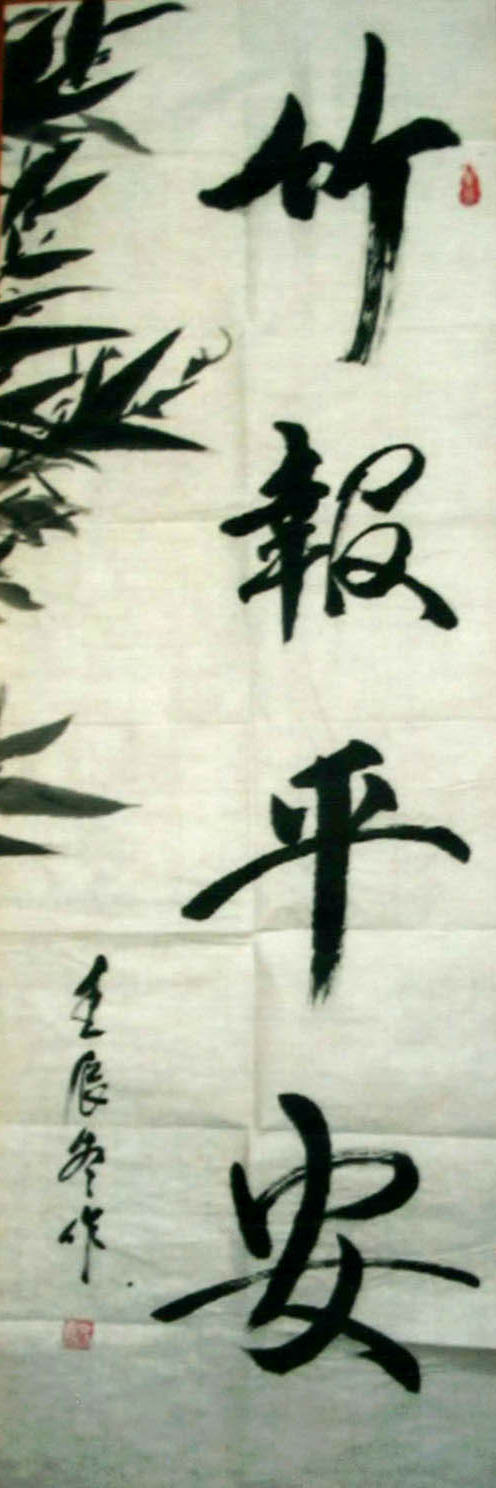 竹報平安
壬辰冬作